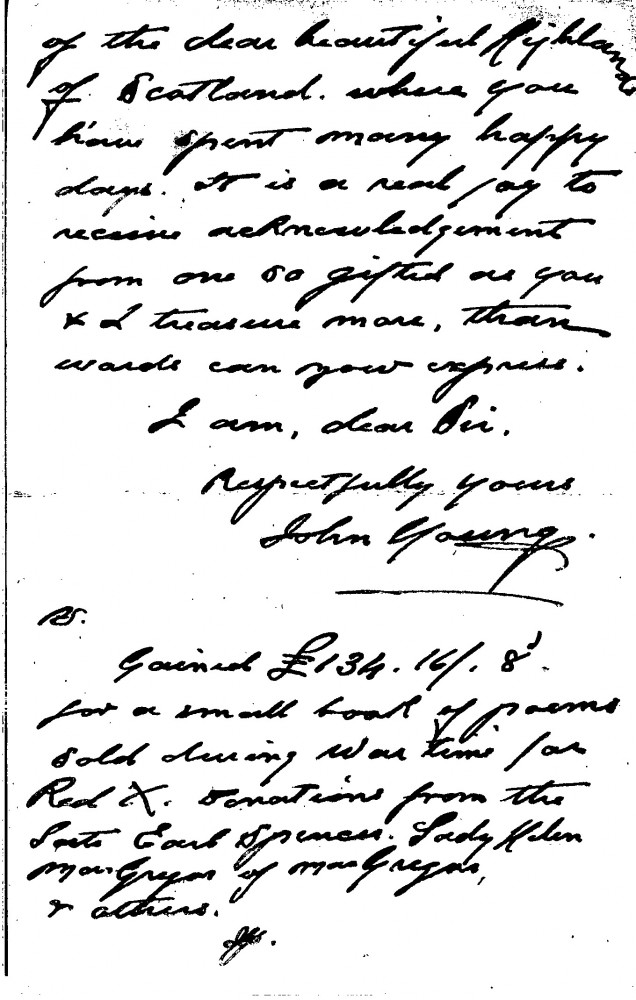 of the dear beautiful Highlands
of Scotland. where you
have spent many happy
days. It is a real joy to
receive acknowledgement
from one so gifted as you
& I treasure more, than
words can now express.
I am, dear Sir.
Respectfully yours
John Young.
PS.
Gained £134. 16/. 8d.
for a small book of poems
sold during War time for
Red X. Donations from the
Late Earl Spencer. Lady Helen
MacGregor of MacGregor,
& others.
JY.